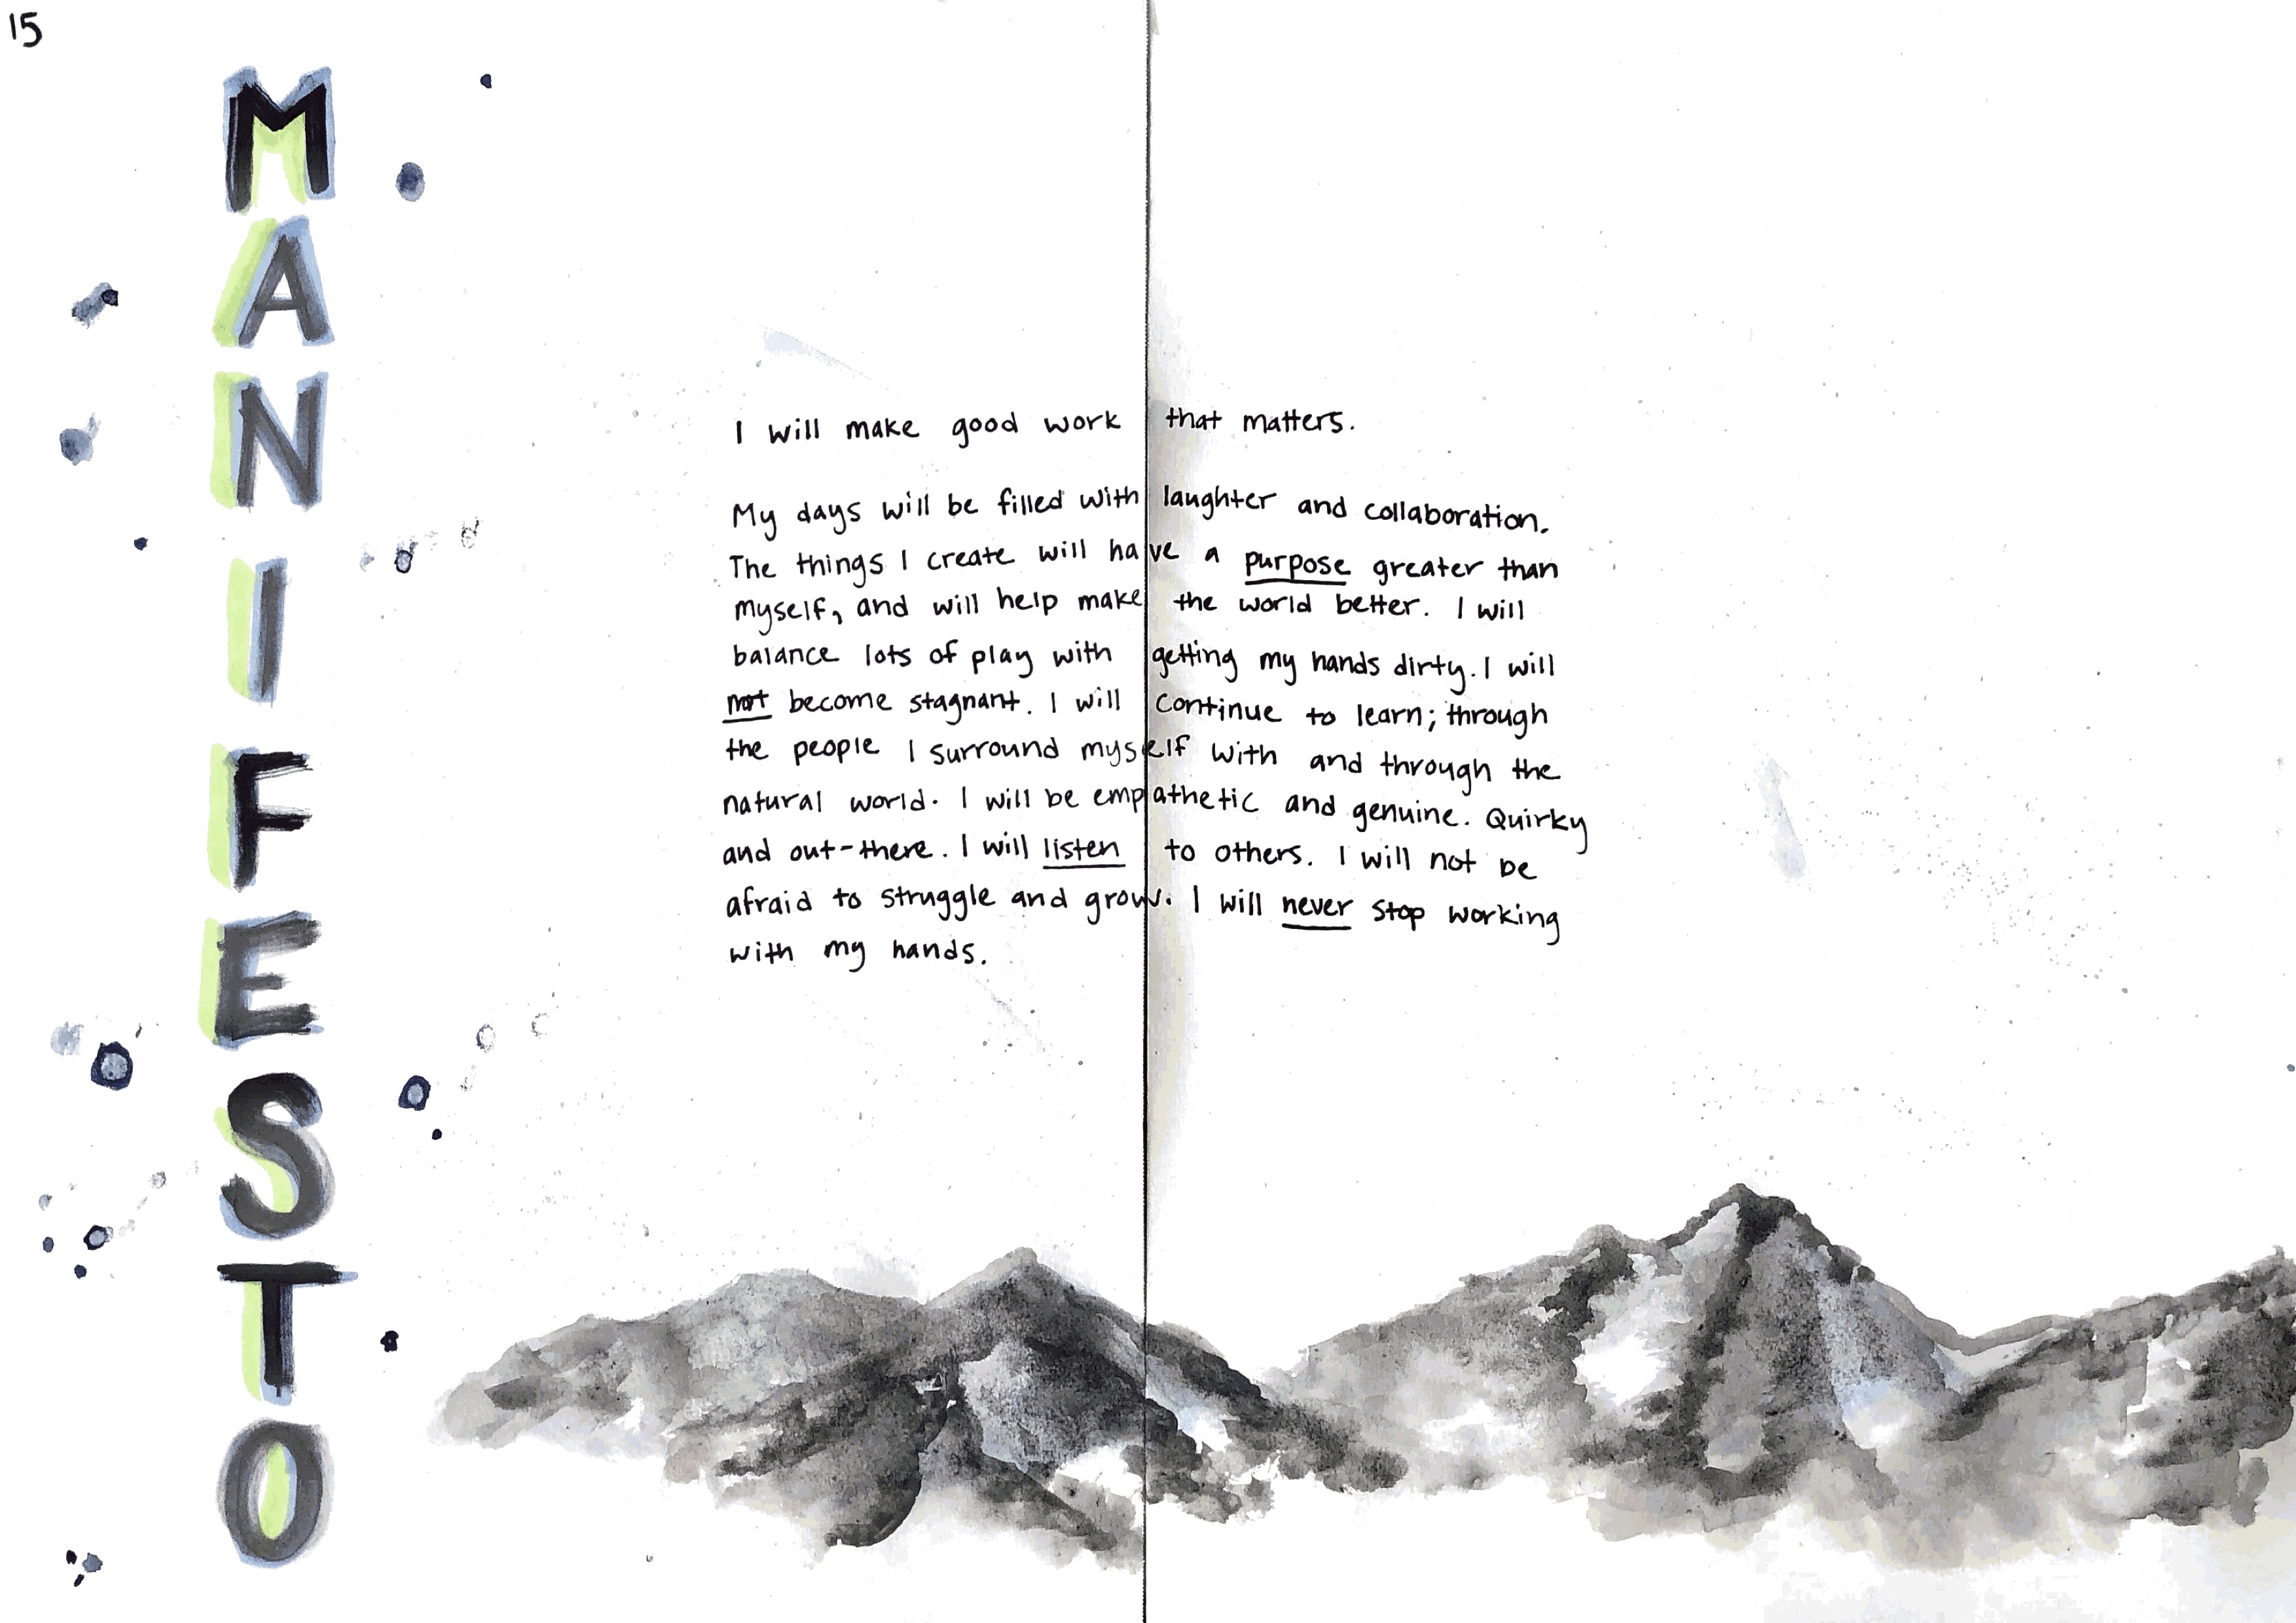 15
MANIFESTO
I will make good work that matters.
My days will be filled with laughter and collaboration.
The things I create will have a purpose greater than
myself, and will help make the world better. I will
balance lots of play with getting my hands dirty. I will
not become stagnant. I will continue to learn; through
the people I surround myself with and through the
natural world. I will be empathetic and genuine. Quirky
and out-there. I will listen to others. I will not be
afraid to struggle and grow. I will never stop working
with my hands.